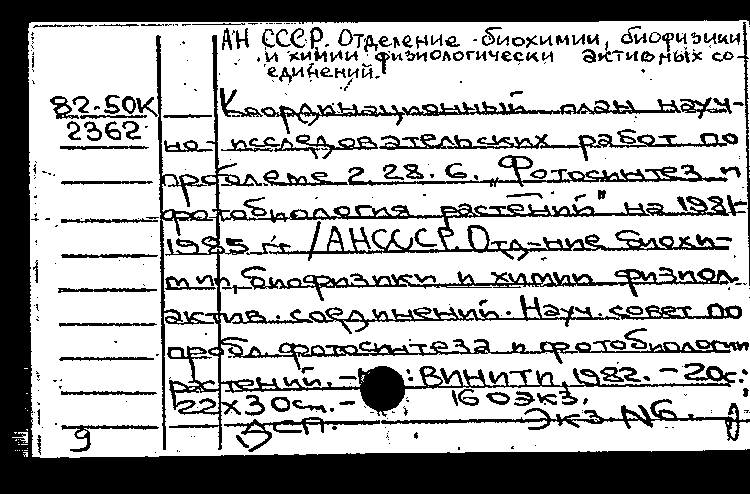 АН СССР. Отделение биохимии, биофизики
и химии физиологически активных со-
единений.
82-50К
2362
Координационный план науч-
но-исследовательских работ по
проблеме 2.28.6. „Фотосинтез и
фотобиология растений" на 1981-
1985 гг /АНСССР. Отд-ние биохи-
мии, биофизики и химии физиол.
актив. соединений. Науч. совет по
пробл. фотосинтеза и фотобиологии
растений. - : ВИНИТИ, 1982. - 20с.;
22х30см. - 160экз.
ДСП. Экз N6.
9